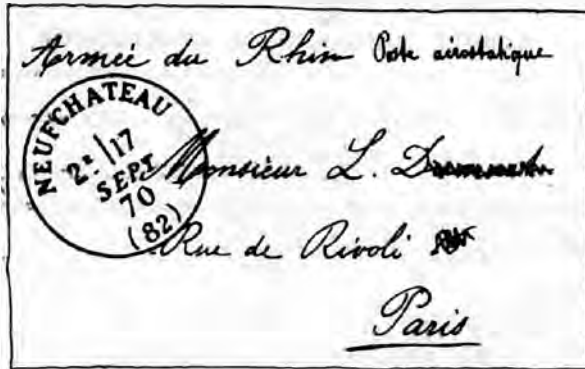 Armée du Rhin Poste aérostatique
NEUFCHATEAU
2ᵉ 17
SEPT
70
(82)
Monsieur L.
Rue de Rivoli
Paris